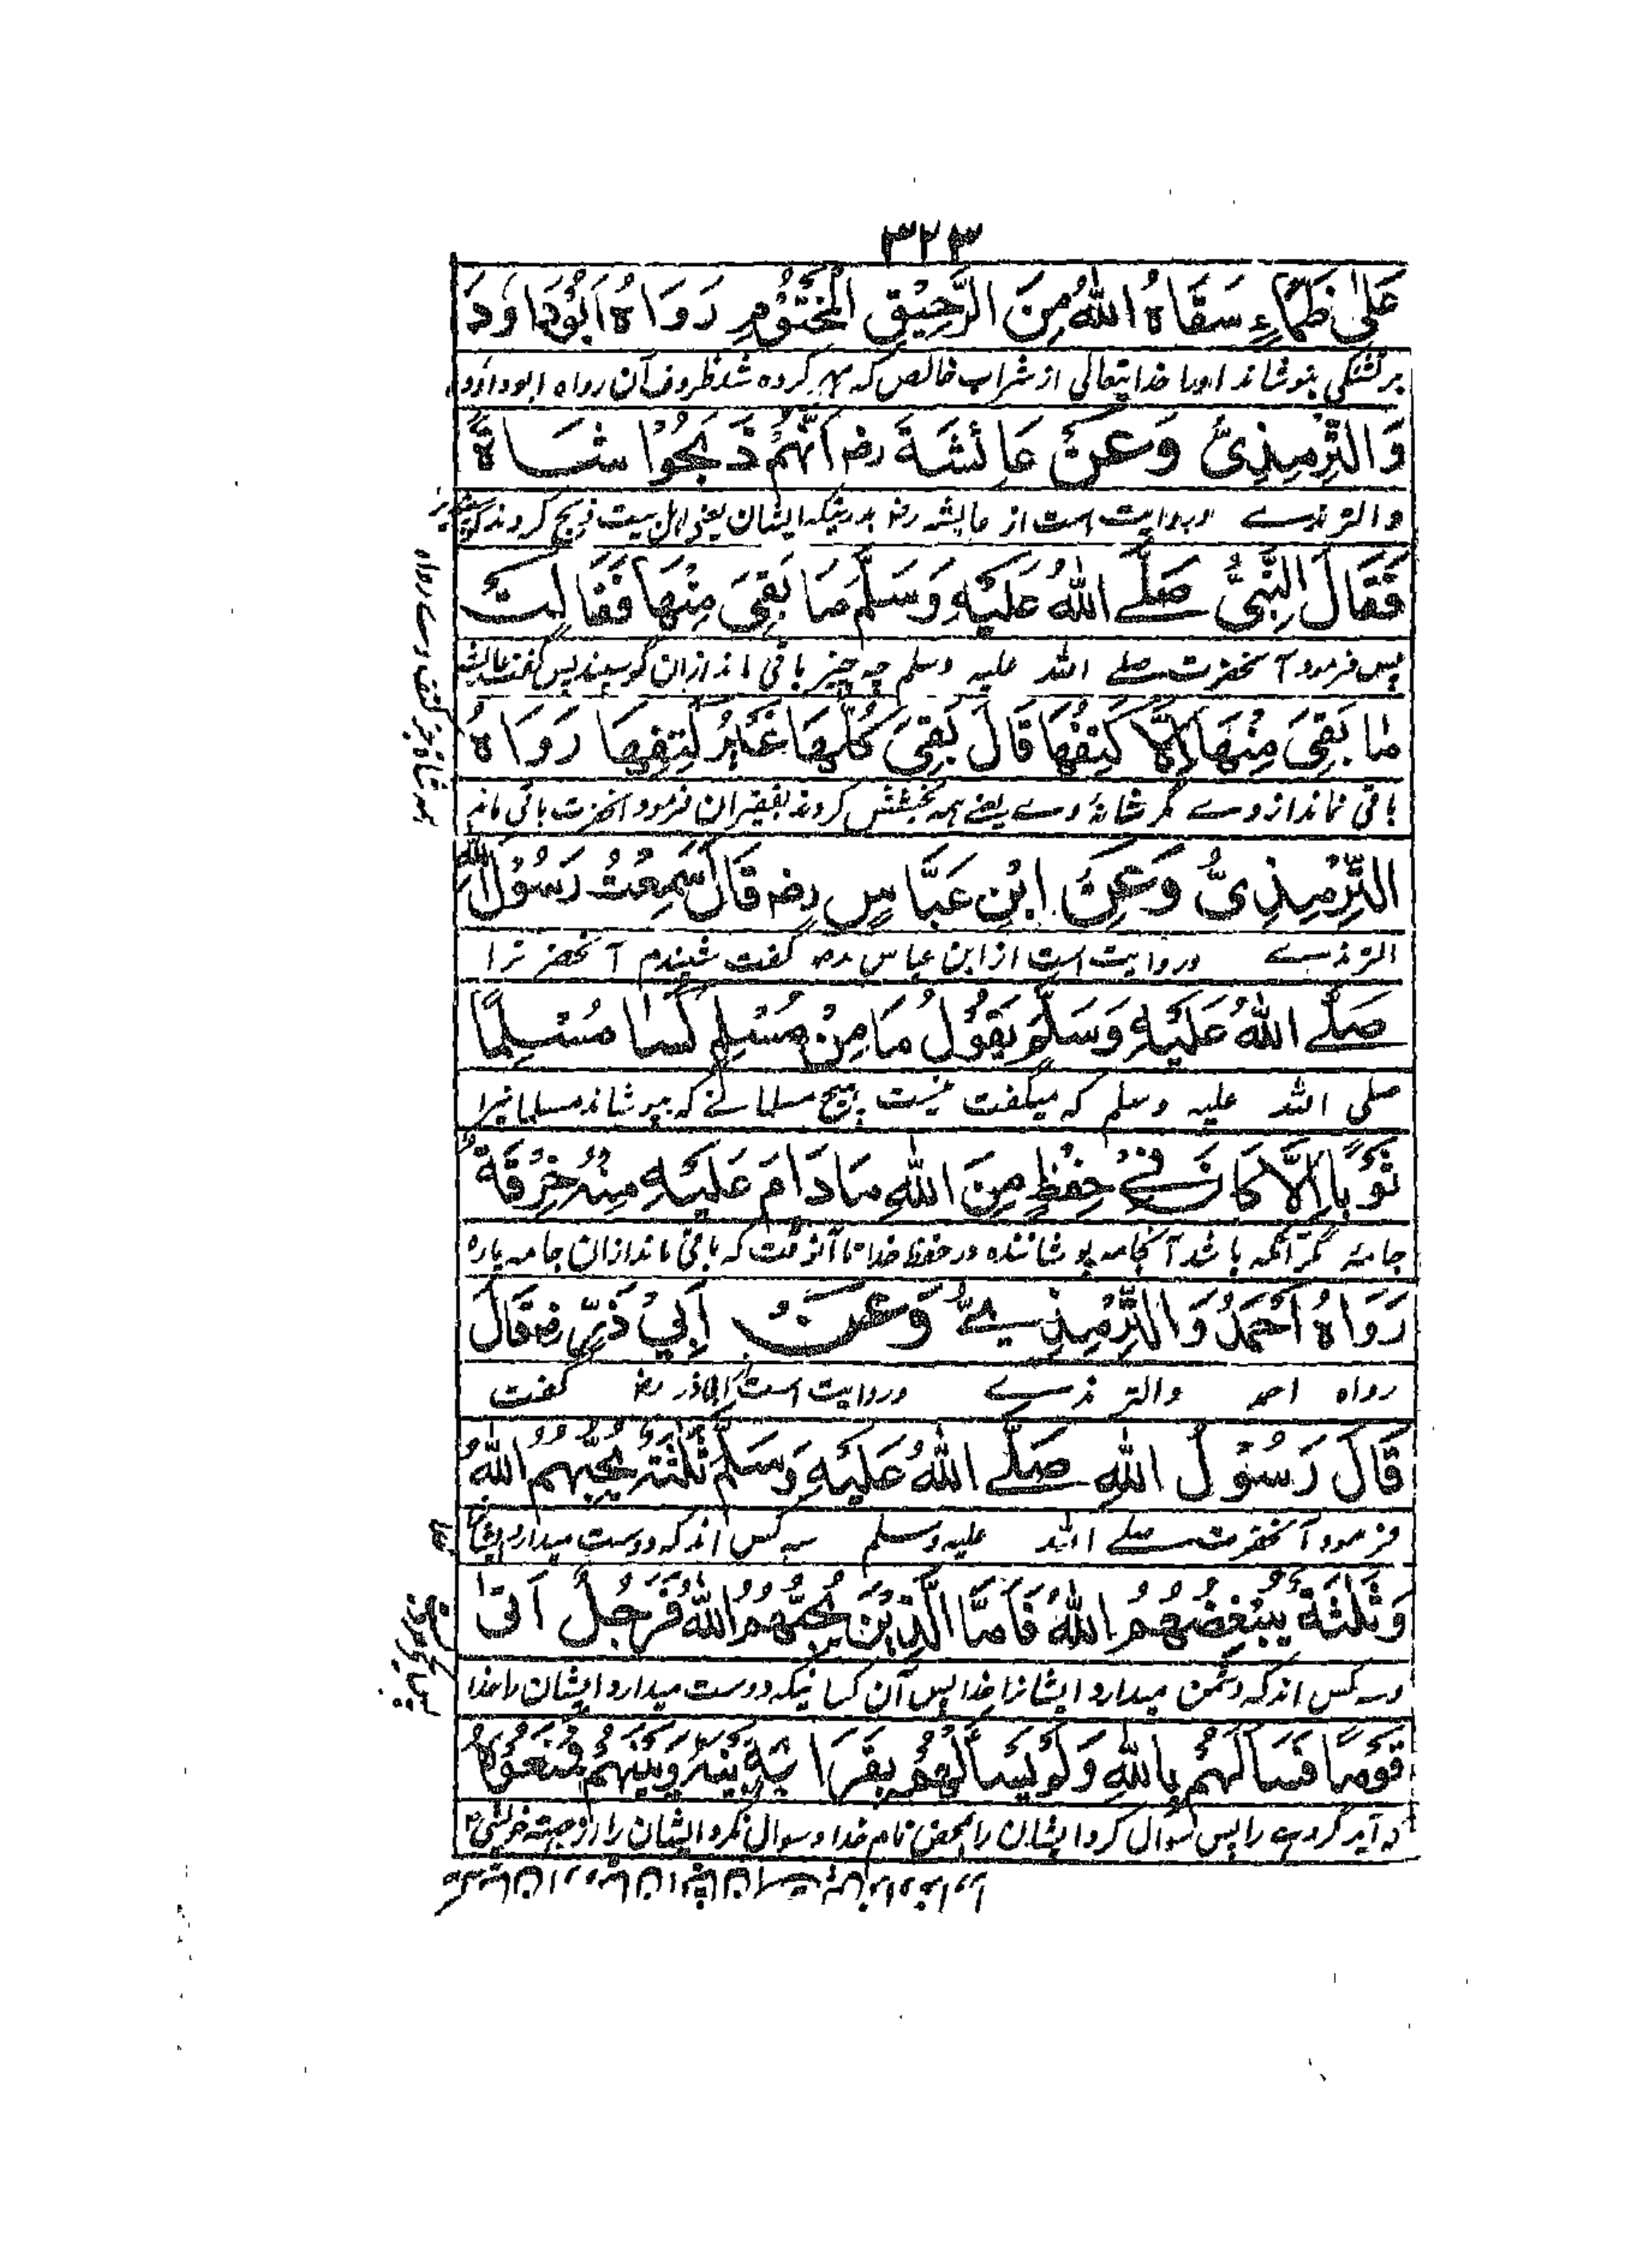 ٣٢٣
عَلٰى ظَمَاءٍ سَقَاهُ اللهُ مِنَ الرَّحِيْقِ الْمَخْتُوْمِ رَوَاهُ اَبُوْدَاوَدَ
بر تشنگی بنوشاند اورا خدایتعالی از شراب خالص که مهر کرده شد ظروف آن رواه ابوداود
وَالتِّرْمِيذِىُّ وَعَنْ عَائشَةَ رض اَنَّهُمْ ذَبَحُوْا شَاةً
والترمذے وروایت است از عایشه رض بدرستیکه ایشان یعنی اهل بیت ذبح کردند
فَقَالَ النَّبِىُّ صَلَّے اللهُ عَلَيْهِ وَسَلَّمَ مَا بَقِىَ مِنْهَا فَقَالَتْ
پس فرمود آنحضرت صلے الله علیه وسلم چه چیز باقی ماند ازان گوسپند پس گفت عایشه
مَا بَقِىَ مِنْهَا اِلَّا كَتِفُهَا قَالَ بَقِىَ كُلُّهَا غَيْرُ كَتِفِهَا رَوَاهُ
باقی نماند از وے مگر شانهٔ وے یعنے همه بخشش کردند بفقیران فرمود آنحضرت باقی ماند
التِّرْمِيذِىُّ وَعَنْ ابْنِ عَبَّاسٍ رض قَالَ سَمِعْتُ رَسُوْلَ اللهِ
الترمذے وروایت است از ابن عباس رض گفت شنیدم آنحضرت را
صَلَّے اللهُ عَلَيْهِ وَسَلَّمَ يَقُوْلُ مَا مِنْ مُسْلِمٍ كَسَا مُسْلِمًا
صلی الله علیه وسلم که میگفت نیست هیچ مسلمانے که بپوشاند مسلمانیرا
ثَوْبًا اِلَّا كَانَ فِيْ حِفْظٍ مِنَ اللهِ مَادَامَ عَلَيْهِ مِنْهُ خِرْقَةٌ
جامهٔ مگر آنکه باشد آنجامه پوشاننده در حفظ خدا تا آنوقت که باقی ماند ازان جامه پاره
رَوَاهُ اَحْمَدُ وَالتِّرْمِيذِيُّ وَعَنْ اَبِيْ ذَرٍّ رض قَالَ
رواه احمد والترمذے وروایت است از ابی‌ذر رض گفت
قَالَ رَسُوْلُ اللهِ صَلَّے اللهُ عَلَيْهِ وَسَلَّمَ ثَلٰثَةٌ يُحِبُّهُمُ اللهُ
فرمود آنحضرت صلے الله علیه وسلم سه کس اند که دوست میدارد ایشان
وَثَلٰثَةٌ يُبْغِضُهُمُ اللهُ فَاَمَّا الَّذِيْنَ يُحِبُّهُمُ اللهُ فَرَجُلٌ اَتٰى
وسه کس اند که دشمن میدارد ایشانرا خدا پس آن کسانیکه دوست میدارد ایشان را خدا
قَوْمًا فَسَاَلَهُمْ بِاللهِ وَلَمْ يَسْاَلْهُمْ بِقَرَابَةٍ بَيْنَهُ وَبَيْنَهُمْ فَمَنَعُوْهُ
که آید گروہے را پس سوال کرد ایشان را بمحض نام خدا و سوال نکرد ایشان را از جهة خویشی